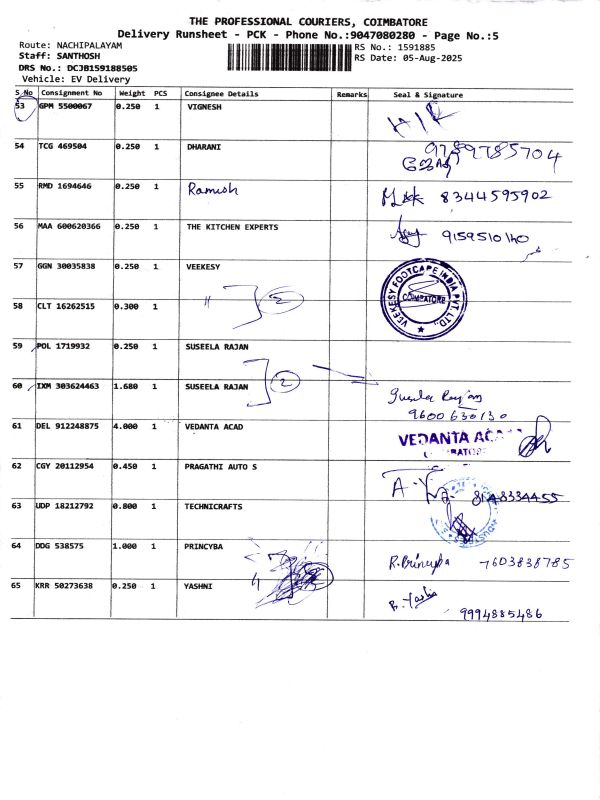 THE PROFESSIONAL COURIERS, COIMBATORE
Delivery Runsheet - PCK - Phone No.:9047080280 - Page No.:5
Route: NACHIPALAYAM
Staff: SANTHOSH
DRS No.: DCJB159188505
Vehicle: EV Delivery
RS No.: 1591885
RS Date: 05-Aug-2025
S_No Consignment No Weight PCS Consignee Details Remarks Seal & Signature
53 GPM 5500067 0.250 1 VIGNESH
54 TCG 469504 0.250 1 DHARANI 9789785704
55 RMD 1694646 0.250 1 Ramesh 8344595902
56 MAA 600620366 0.250 1 THE KITCHEN EXPERTS
57 GGN 30035838 0.250 1 VEEKESY VEEKESY FOOTCAPE INDIA PVT. LTD., COIMBATORE
58 CLT 16262515 0.300 1 " 2
59 POL 1719932 0.250 1 SUSEELA RAJAN
60 IXM 303624463 1.680 1 SUSEELA RAJAN 2
9600630130
61 DEL 912248875 4.000 1 VEDANTA ACAD VEDANTA ACA
62 CGY 20112954 0.450 1 PRAGATHI AUTO S
63 UDP 18212792 0.800 1 TECHNICRAFTS
64 DDG 538575 1.000 1 PRINCYBA R.Princyba 7603838785
65 KRR 50273638 0.250 1 YASHNI 9994885486